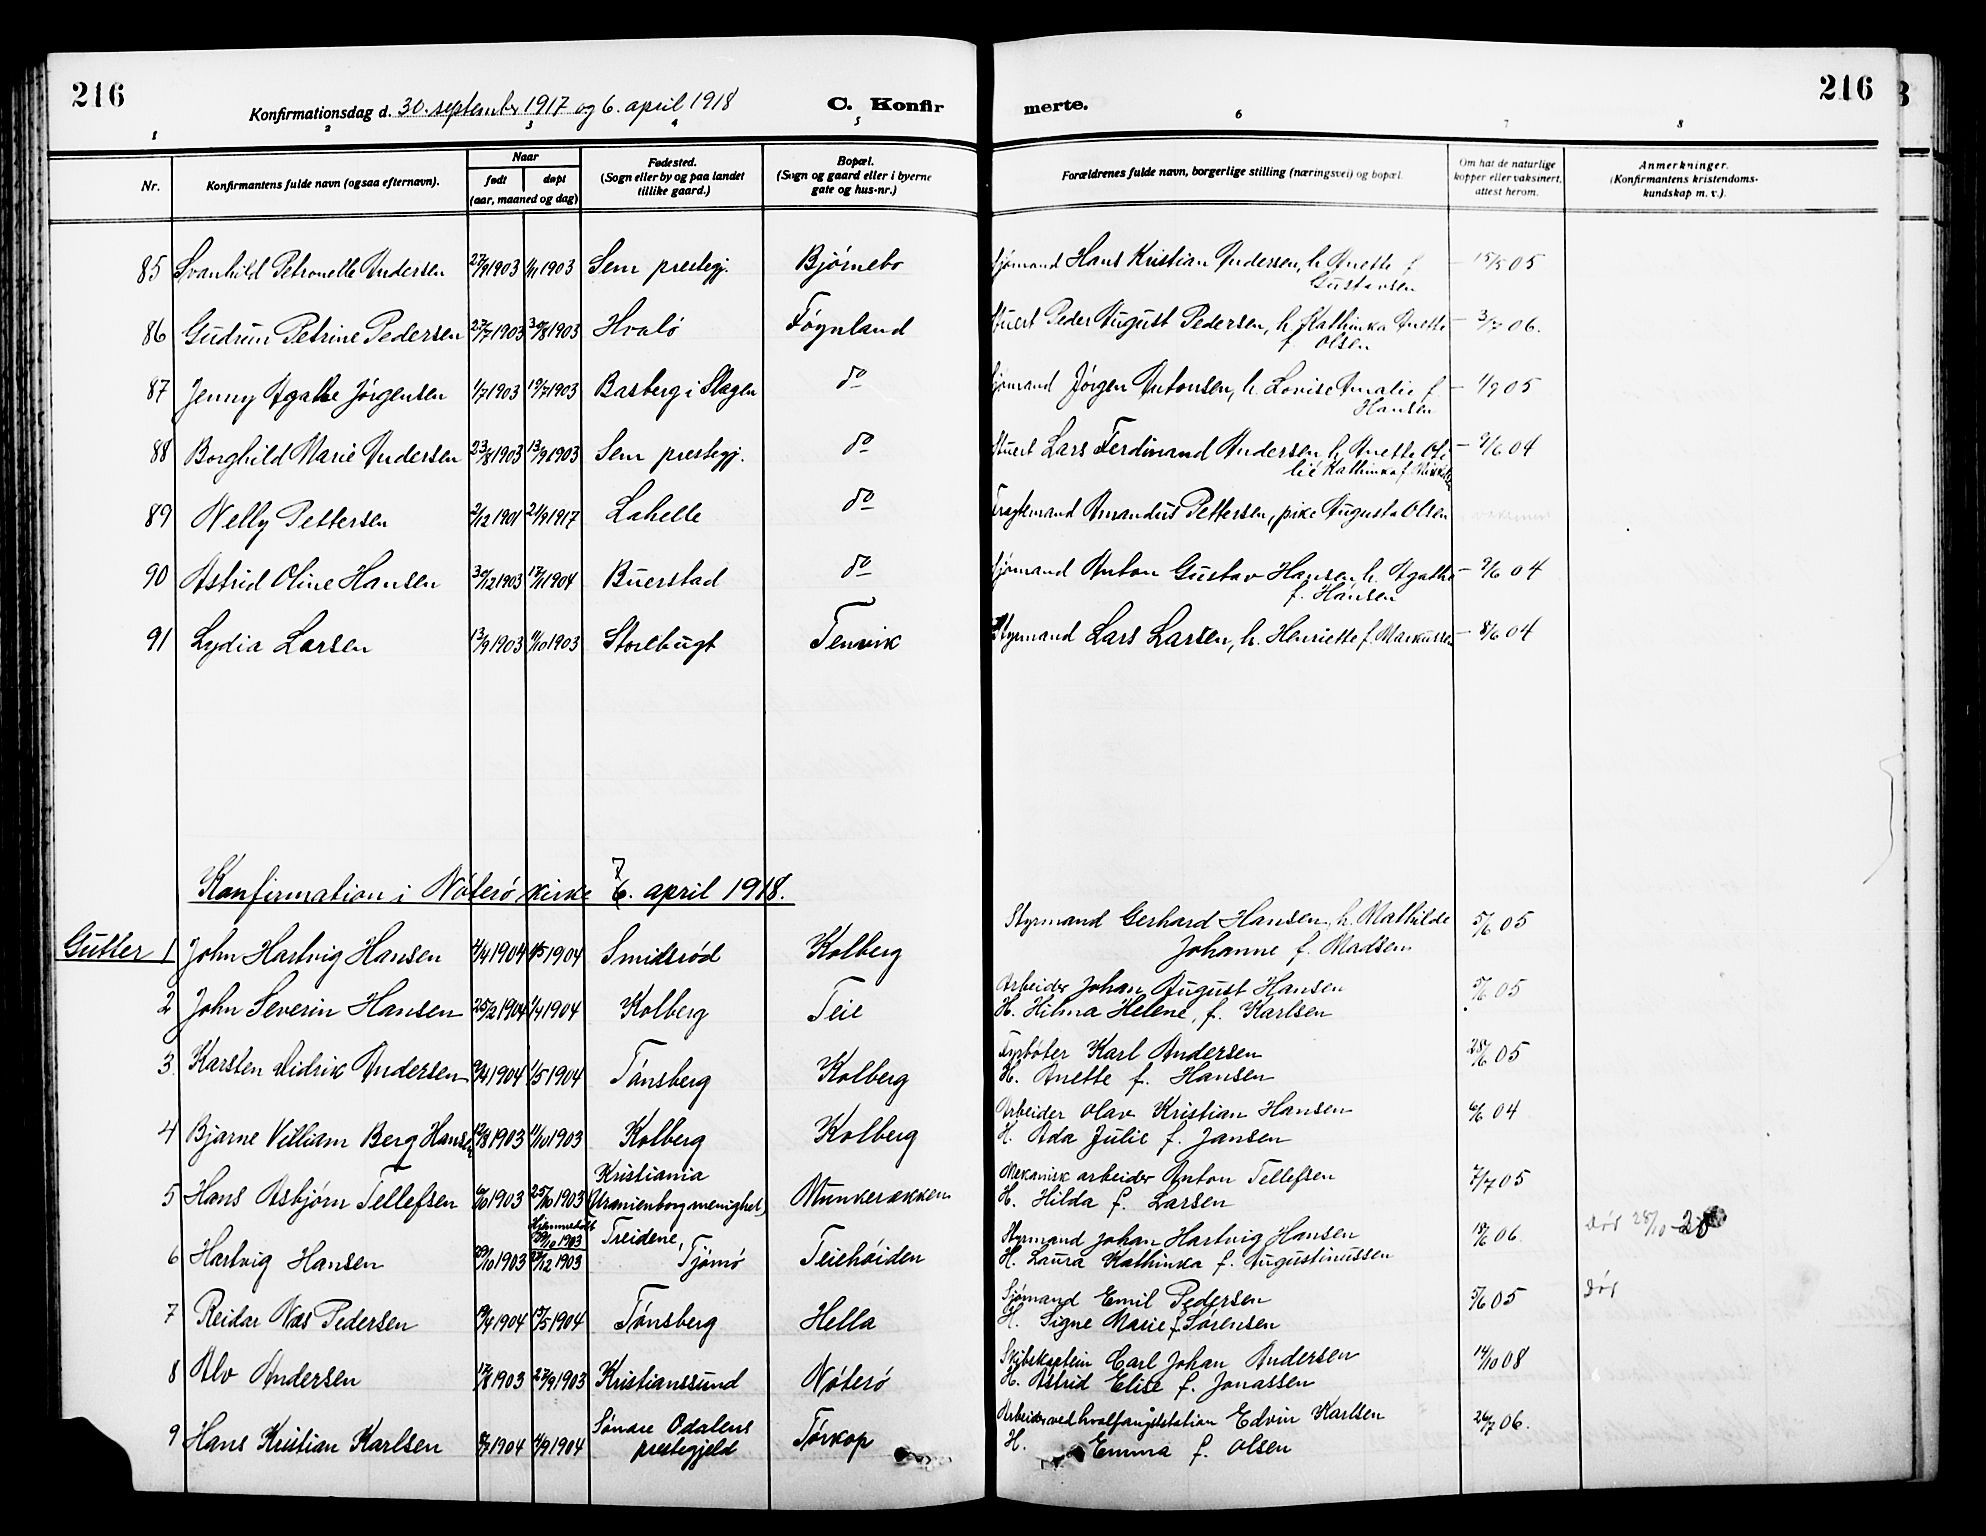 216
Konfirmationsdag d. 30. september 1917 og 6. april 1918
C. Konfir
merte.
216
1 2 3 4 5 6 7 8
Nr.
Konfirmantens fulde navn (ogsaa efternavn).
Naar
født
døpt
(aar, maaned og dag)
Fødested.
(Sogn eller by og paa landet
tillike gaard.)
Bopæl.
(Sogn og gaard eller i byerne
gate og hus-nr.)
Forældrenes fulde navn, borgerlige stilling (næringsvei) og bopæl.
Om hat de naturlige
kopper eller vaksinert,
attest herom.
Anmerkninger.
(Konfirmantens kristendoms-
kundskap m. v.).
85 Svanhild Petronelle Andersen 27/9 1903 1/11 1903 Sem prestegj. Bjørnebo Sjømand Hans Kristian Andersen, h. Anette f. 15/5 05
Gustavsen
86 Gudrun Petrine Pedersen 27/7 1903 30/8 1903 Hvalö Føynland Stuert Peder August Pedersen, h. Kathinka Anette 3/7 06.
f. Olsen
87 Jenny Agathe Jörgensen 1/7 1903 19/7 1903 Basberg i Slagen do Sjømand Jörgen Antonsen, h. Lovise Amalie f. 1/9 05
Hansen
88 Borghild Marie Andersen 23/8 1903 13/9 1903 Sem prestegj. do Stuert Lars Ferdinand Andersen h. Anette Oti- 9/6 04
lie Kathinka f.
89 Nelly Pettersen 2/12 1901 21/9 1917 Lahelle do Fragtemand Amandus Pettersen, pike Augusta Olsen
90 Astrid Oline Hansen 30/12 1903 17/1 1904 Buerstad do Sjømand Anton Gustav Hansen h. Agathe 9/6 04
f. Hansen
91 Lydia Larsen 13/9 1903 11/10 1903 Storebugt Tenvik Styrmand Lars Larsen, h. Henriette f. Markussen 8/6 04
Konfirmation i Nöterö kirke 7 6. april 1918.
Styrmand Gerhard Hansen, h. Mathilde 5/6 05
Gutter 1 John Hartvig Hansen 4/4 1904 1904 Smidsröd Kolberg Johanne f. Madsen
2 John Severin Hansen 25/2 1904 1/4 1904 Kolberg Teie Arbeider Johan August Hansen 5/6 05
H. Hilma Helene, f. Karlsen
3. Karsten Didrik Andersen 1904 1/5 1904 Tönsberg Kolberg Fyrböter Karl Andersen 28/6 05
H. Anette f. Hansen
4 Bjarne Villiam Berg Hansen 1903 11/10 1903 Kolberg Kolberg Arbeider Olav Kristian Hansen 6/6 04
H. Ada Julie f. Jansen
5 Hans Asbjørn Tellefsen 6/10 1903 25/10 1903 Kristiania
(Uranienborg menighet) Munkerækken Mekanisk arbeider Anton Tellefsen 7/7 05
H. Hilda f. Larsen
6 Hartvig Hansen 29/10 1903 Hjemmedøbt
29/10 1903
27/12 1903 Treidene,
Tjömö Teiehöiden Styrmand Johan Hartvig Hansen 18/6 06 død 28/10 28
H. Laura Kathinka f. Augustinussen
7 Reidar Næs Pedersen 1904 15/5 1904 Tønsberg Hella Sjømand Emil Pedersen 5/6 05 død
H. Signe Marie f. Sörensen
8 Alv Andersen 17/8 1903 27/9 1903 Kristianssund Nöterö Skibskaptein Carl Johan Andersen 14/10 08
H. Astrid Elise f. Jonassen
9 Hans Kristian Karlsen 1904 4/9 1904 Søndre Odalens
prestegjeld Torkop Arbeider ved hvalfangststation Edvin Karlsen 26/7 06.
H. Emma f. Olsen